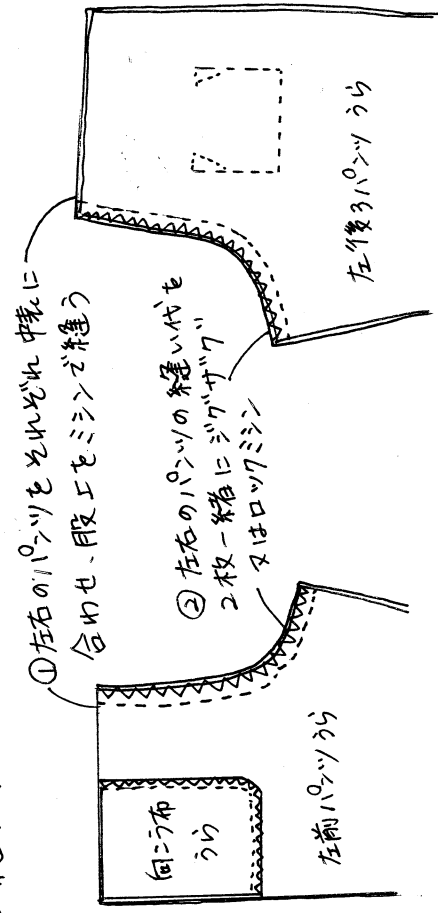 ①左右のパンツをそれぞれ中表に
合わせ、股上をミシンで縫う
②左右のパンツの縫い代を
2枚一緒にジグザグ
又はロックミシン
向こう布
うら
左前パンツうら
左後ろパンツうら